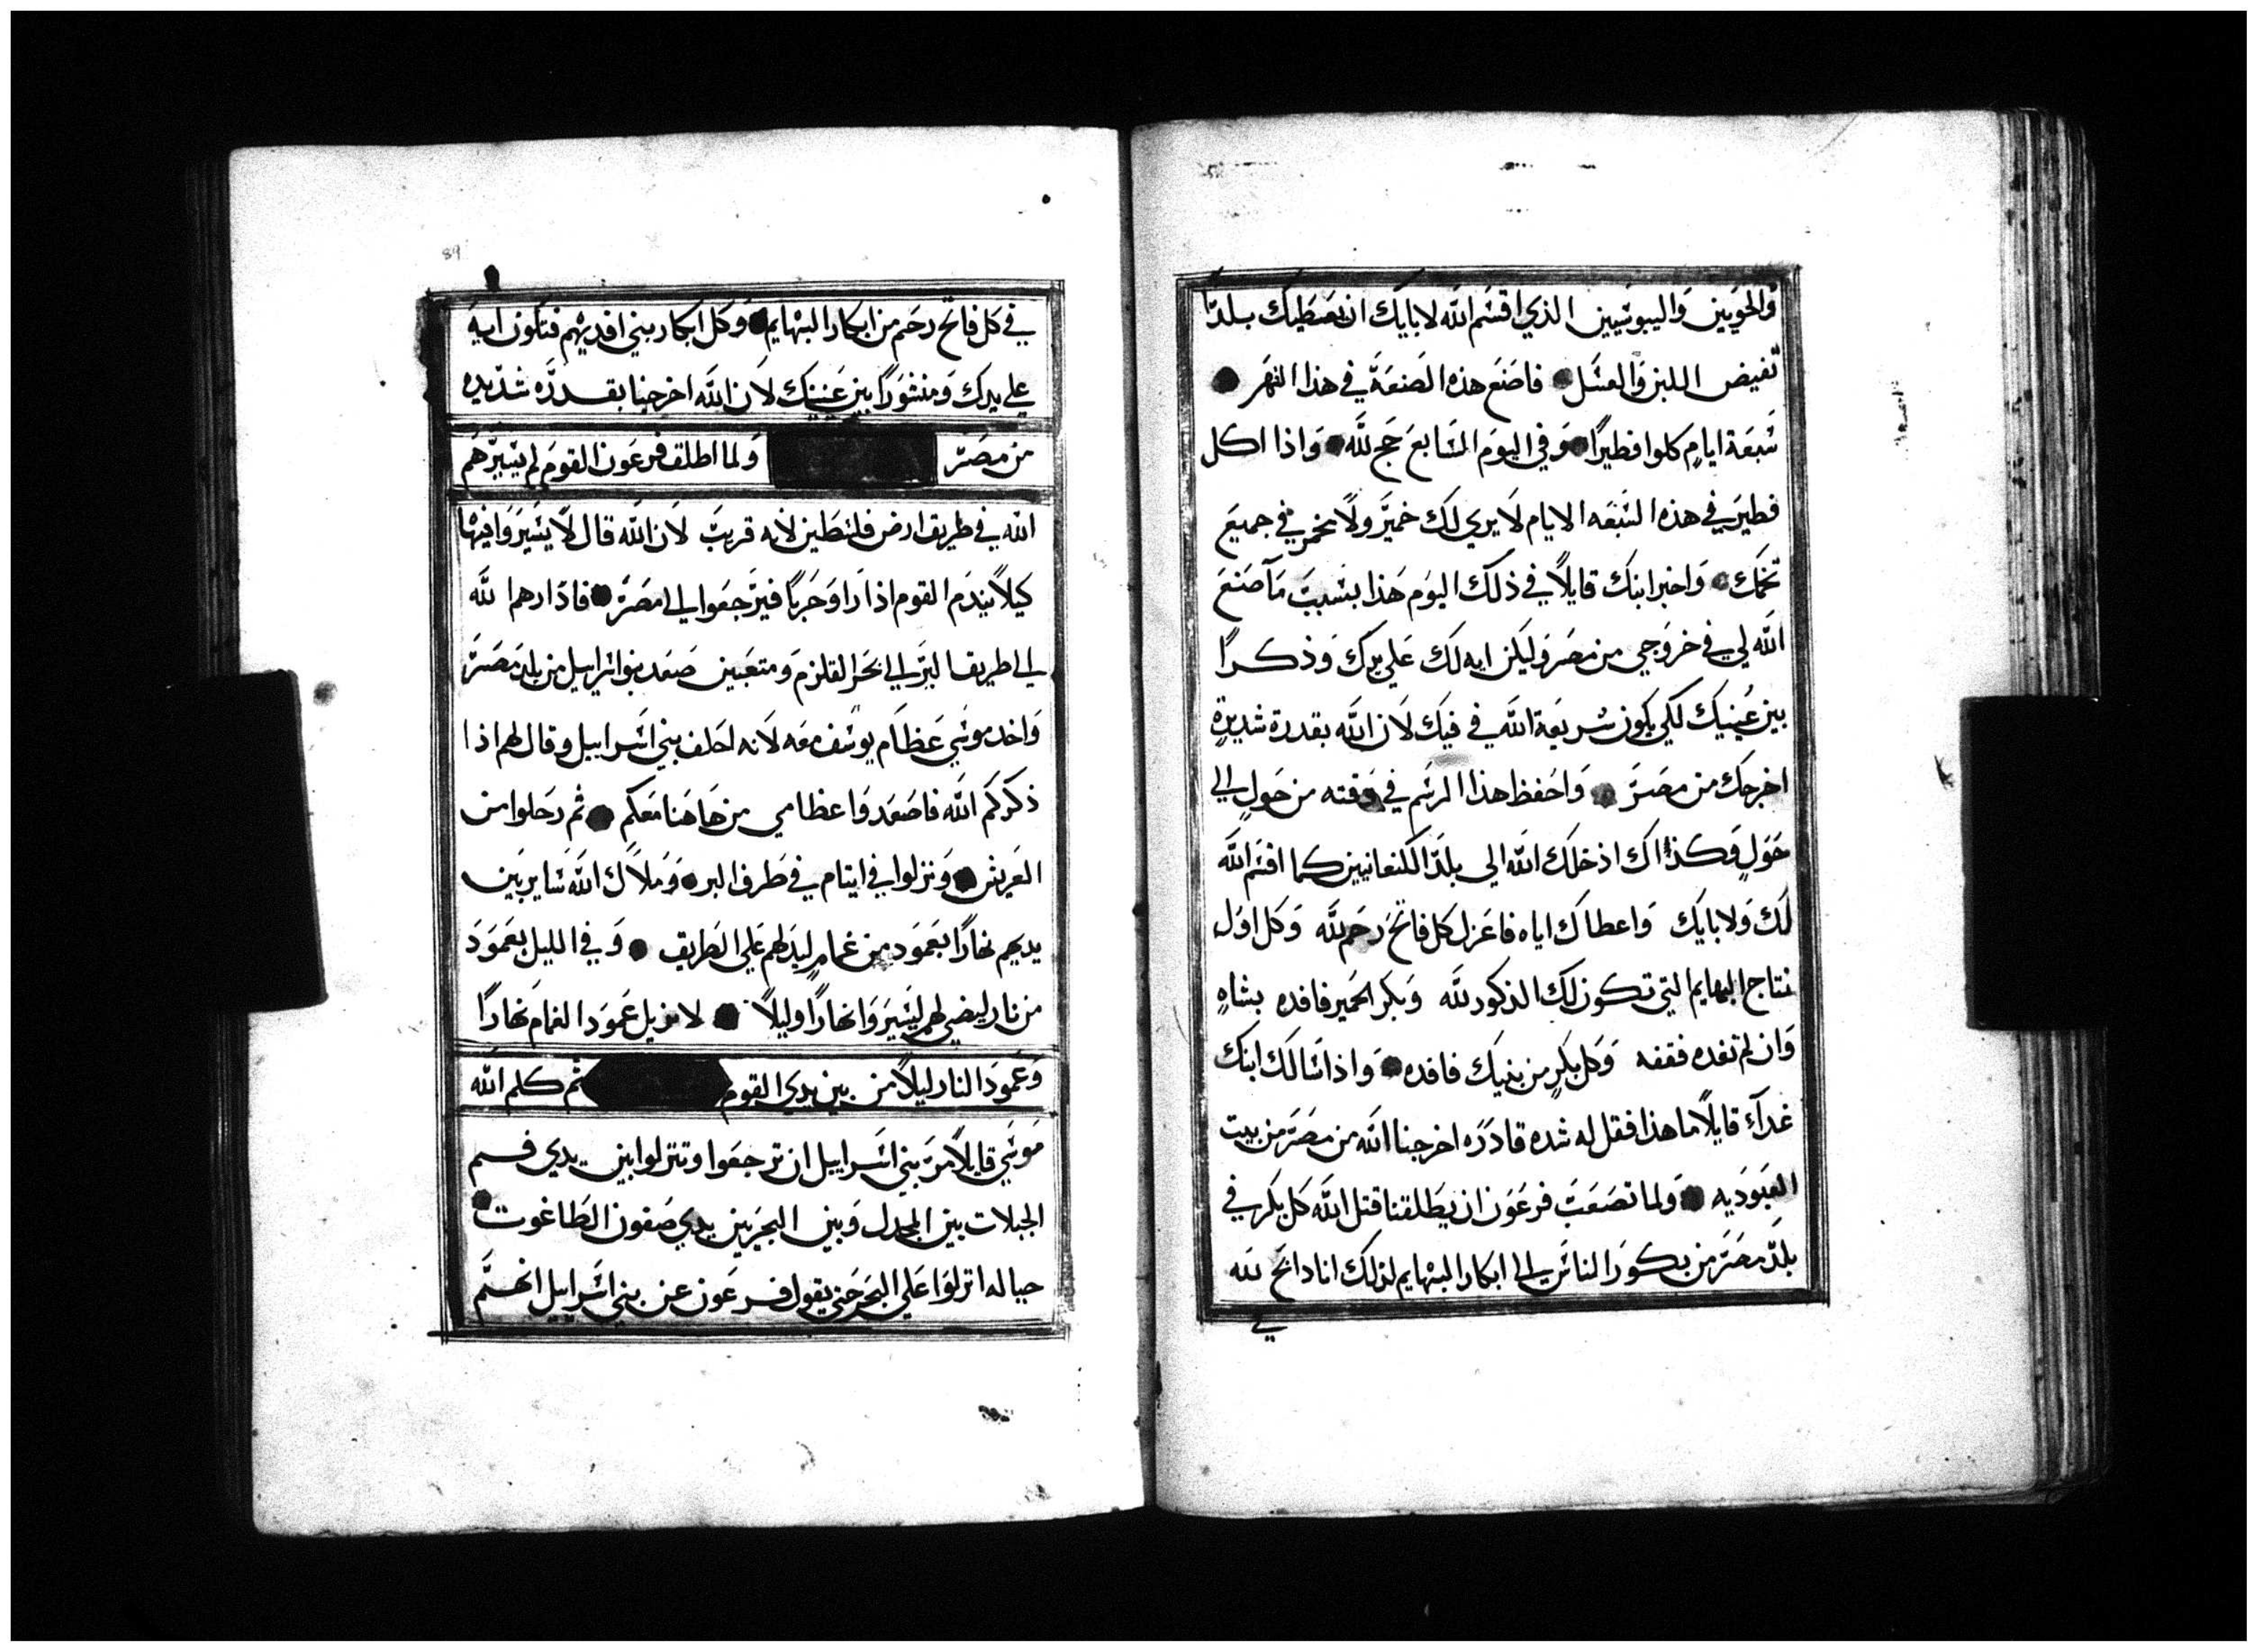 والحويين واليبوسيين الذي اقسم الله لابايك ان يعطيك بلدًا
تفيض اللبن والعسل فاصنع هذه الصنعة في هذا الشهر
سبعة ايامٍ كلوا فطيرًا وفي اليوم السابع حج لله واذا اكل
فطير في هذه السبعه الايام لا يري لك خمير ولا مخمر في جميع
تخمك واخبر ابنك قايلاً في ذلك اليوم هذا بسبب ما صنع
الله لي في خروجي من مصر وليكن ايه لك علي يدك وذكرًا
بين عينيك لكي يكون شريعة الله في فيك لان الله بقدرة شديدةٍ
اخرجك من مصر واحفظ هذا الرسم في وقته من حولٍ الي
حولٍ وكذاك اذ خلك الله الي بلد الكنعانيين كما اقسم الله
لك ولابايك واعطاك اياه فاعزل كل فاتح رحم لله وكل اول
نتاج البهايم التي تكون لك الذكور لله وبكر الحمير فافده بشاهٍ
وان لم تفده فقفه وكل بكرٍ من بنيك فافده واذا سالك ابنك
غدآ قايلاً ما هذا فقل له شده قادره اخرجنا الله من مصر من بيت
العبوديه ولما تصعب فرعون ان يطلقنا قتل الله كل بكر في
بلد مصر من بكور الناس الي ابكار البهايم لذلك انا دابح لله
في
89
في كل فاتح رحم من ابكار البهايم وكل ابكار بني افديهم فتكون ايه
علي يدك ومنشورًا بين عينيك لان الله اخرجنا بقدره شديده
من مصر ولما اطلق فرعون القوم لم يسيرهم
الله في طريق ارض فلسطين لانه قريب لان الله قال لا يسيروا فيها
كيلا يندم القوم اذا راوا حربًا فيرجعوا الي مصر فادارهم الله
الي طريق البر الي بحر القلزم ومتعبين صعد بنوا اسراييل من بلد مصر
واخد موسي عظام يوسف معه لانه احلف بني اسراييل وقال لهم اذا
ذكركم الله فاصعدوا عظامي من هاهنا معكم ثم رحلوا من
العريش ونزلوا في ايتام في طرف البر وملاك الله ساير بين
يديهم نهارًا بعمود من غمامٍ ليدلهم علي الطريق وفي الليل بعمود
من نار ليضي لهم ليسيروا نهارًا وليلاً لا يزيل عمود الغمام نهارًا
وعمود النار ليلاً من بين يدي القوم ثم كلم الله
موسي قايلاً مر بني اسراييل ان ترجعوا وتنزلوا بين يدي فم
الجبلات بين المجدل وبين البحرين يدي صفون الطاغوت
حياله انزلوا علي البحر حتي يقول فرعون عن بني اسراييل انهم